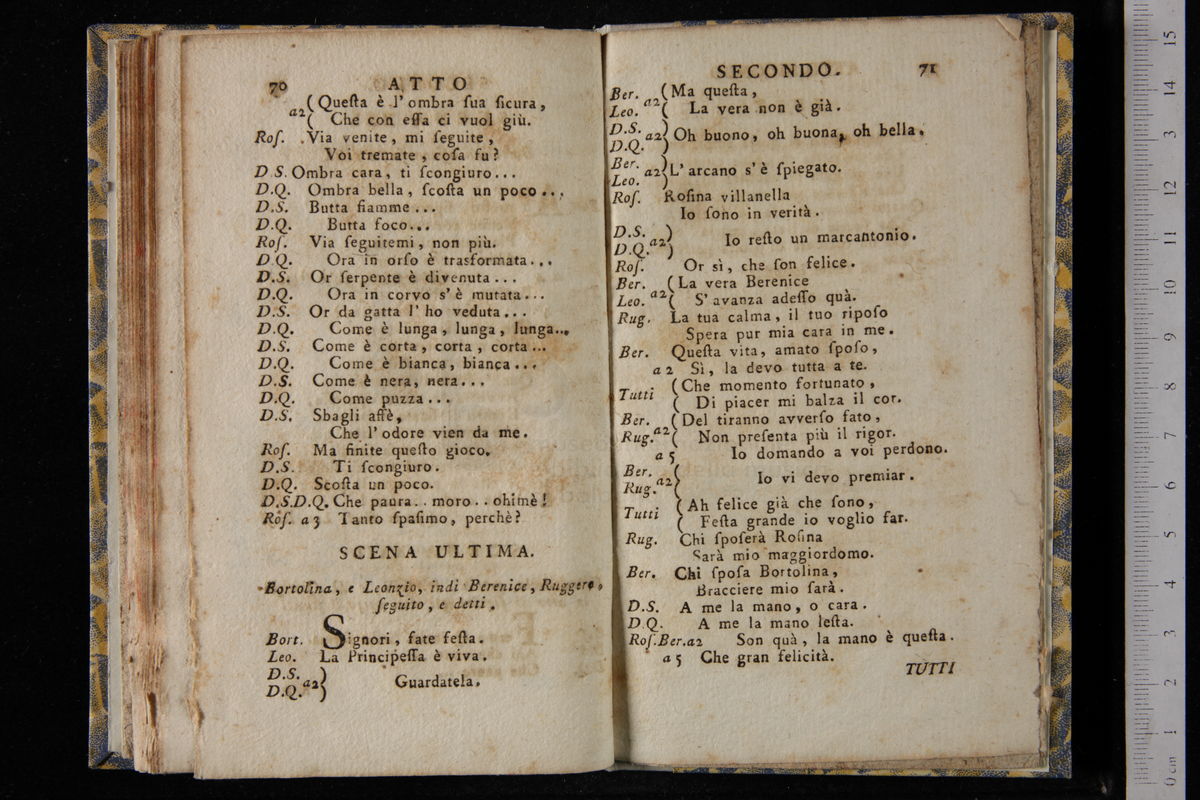 70 ATTO
a2 ( Queſta è l' ombra ſua ſicura,
( Che con eſſa ci vuol giù.
Roſ. Via venite, mi ſeguite,
Voi tremate, coſa fu?
D S. Ombra cara, ti ſcongiuro...
D.Q. Ombra bella, ſcoſta un poco...
D.S. Butta fiamme...
D.Q. Butta foco...
Roſ. Via ſeguitemi, non più.
D Q. Ora in orſo è trasformata...
D.S. Or ſerpente è divenuta...
D.Q. Ora in corvo s' è mutata...
D.S. Or da gatta l' ho veduta...
D.Q. Come è lunga, lunga, lunga...
D.S. Come è corta, corta, corta...
D.Q. Come è bianca, bianca...
D.S. Come è nera, nera...
D.Q. Come puzza...
D.S. Sbagli affè,
Che l' odore vien da me.
Roſ. Ma finite queſto gioco.
D.S. Ti ſcongiuro.
D.Q. Scoſta un poco.
D.S.D.Q. Che paura.. moro.. ohimè!
Roſ. a 3 Tanto ſpaſimo, perchè?
SCENA ULTIMA.
Bortolina, e Leonzio, indi Berenice, Ruggero,
ſeguito, e detti.
Bort. Signori, fate feſta.
Leo. La Principeſſa è viva.
D.S. )
D.Q. a2 ) Guardatela.
SECONDO. 71
Ber. ( Ma queſta,
Leo. a2 ( La vera non è già.
D.S. a2 ) Oh buono, oh buona, oh bella.
D.Q. )
Ber. a2 ) L' arcano s' è ſpiegato.
Leo. )
Roſ. Roſina villanella
Io ſono in verità.
D.S. ) Io reſto un marcantonio.
D.Q. a2 )
Roſ. Or sì, che ſon felice.
Ber. ( La vera Berenice
Leo. a2 ( S' avanza adeſſo quà.
Rug. La tua calma, il tuo ripoſo
Spera pur mia cara in me.
Ber. Queſta vita, amato ſpoſo,
a 2 Sì, la devo tutta a te.
Tutti ( Che momento fortunato,
( Di piacer mi balza il cor.
Ber. ( Del tiranno avverſo fato,
Rug. a2 ( Non preſenta più il rigor.
a 5 Io domando a voi perdono.
Ber. ( Io vi devo premiar.
Rug. a2 (
Tutti ( Ah felice già che ſono,
( Feſta grande io voglio far.
Rug. Chi ſpoſerà Roſina
Sarà mio maggiordomo.
Ber. Chi ſpoſa Bortolina,
Bracciere mio ſarà.
D.S. A me la mano, o cara.
D Q. A me la mano leſta.
Roſ.Ber.a2 Son quà, la mano è queſta.
a 5 Che gran felicità.
TUTTI
15
14
13
12
11
10
9
8
7
6
5
4
3
2
1
0 cm